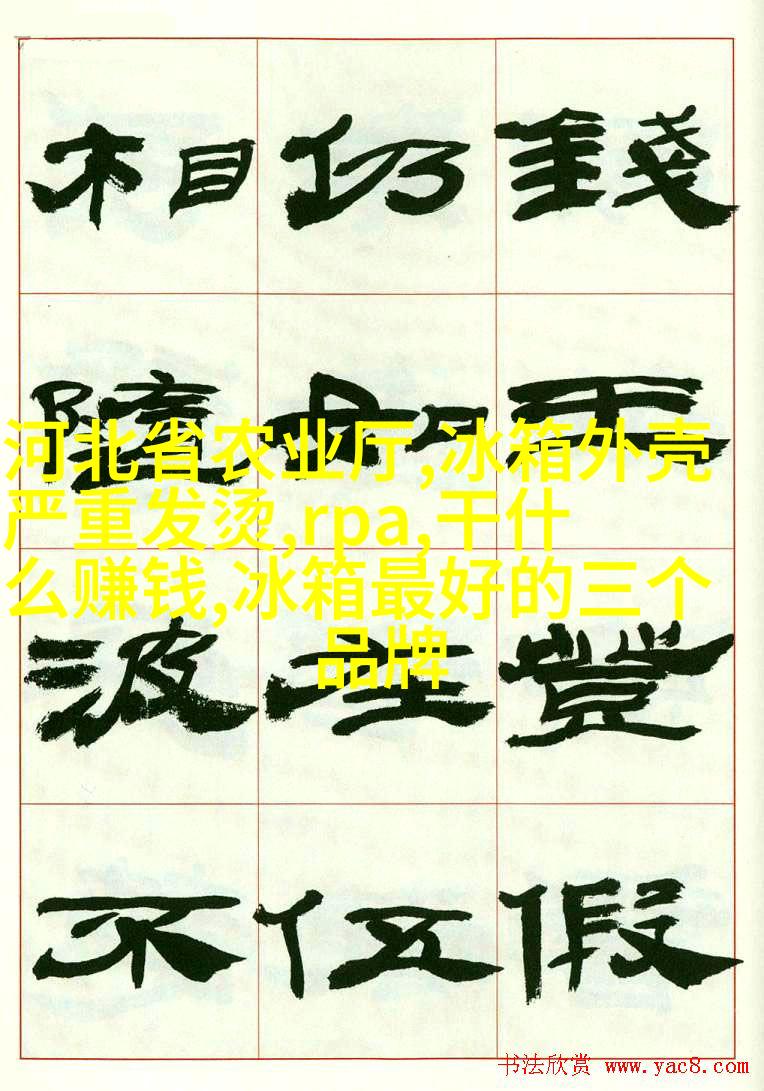 相仍錢
如
河北省农业厅,冰箱外壳
严重发烫,rpa,干什
么赚钱,冰箱最好的三个
品牌
波豈
不伍假
书法欣赏 www.yac8.com